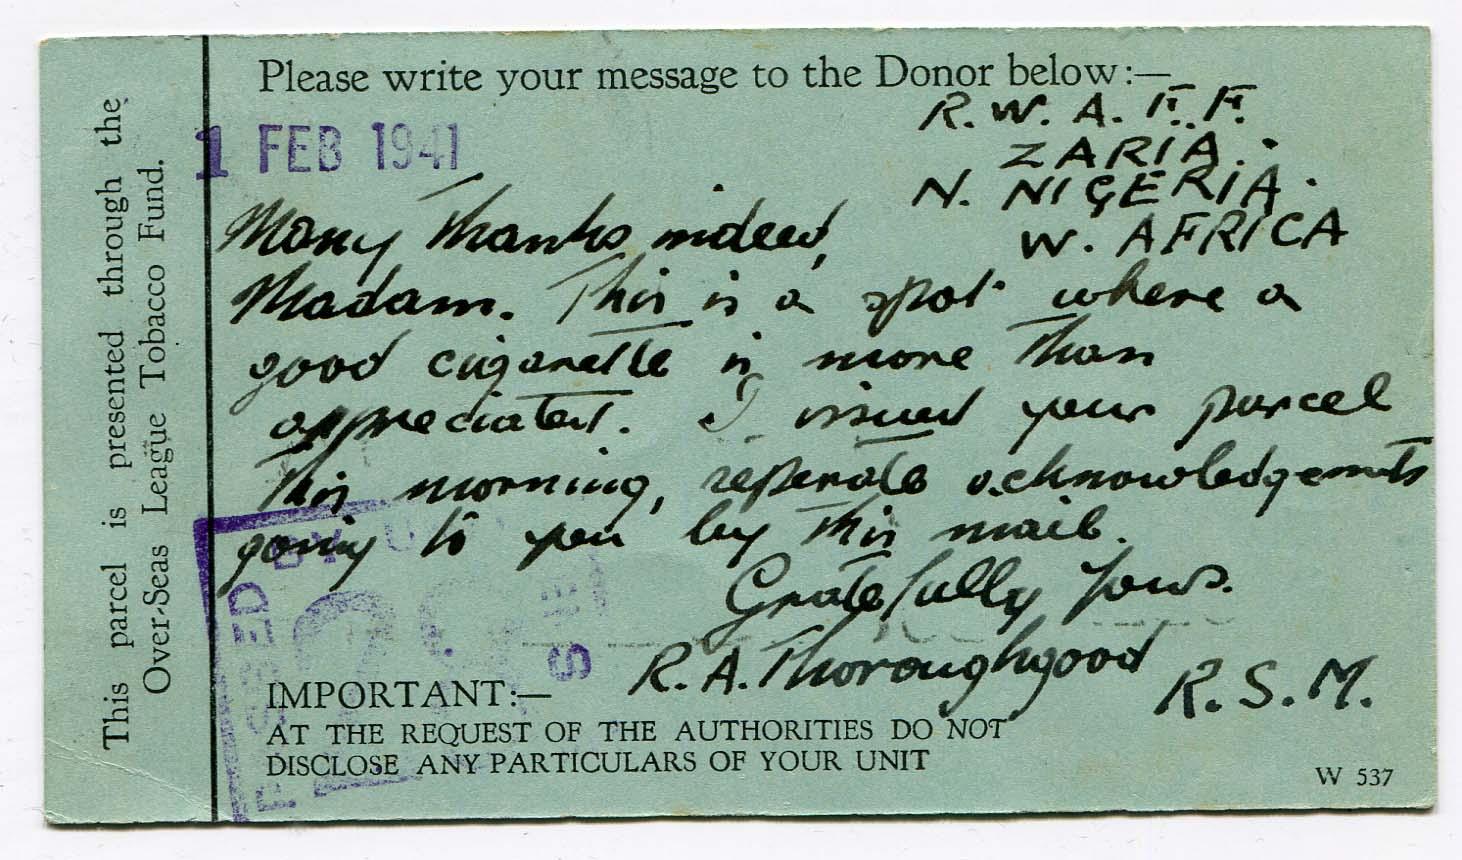 This parcel is presented through the
Over-Seas League Tobacco Fund.
Please write your message to the Donor below:—
1 FEB 1941
R. W. A. F. F.
ZARIA.
N. NIGERIA.
W. AFRICA
Many Thanks indeed,
Madam. This is a spot where a
good cigarette is more than
appreciated. I issued your parcel
this morning, seperate acknowledgements
going to you by this mail.
Gratefully Yours.
R. A. Thoroughgood R. S. M.
IMPORTANT:—
AT THE REQUEST OF THE AUTHORITIES DO NOT
DISCLOSE ANY PARTICULARS OF YOUR UNIT
W 537